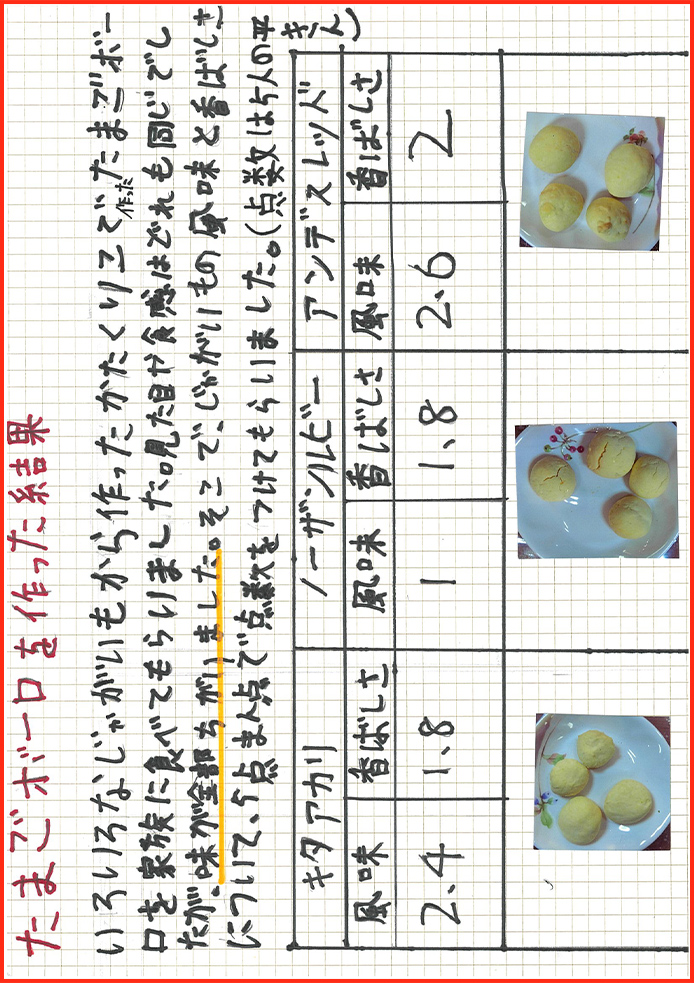 たまごボーロを作った結果
いろいろなじゃがいもから作ったかたくりこで作ったたまごボー
ロを家族に食べてもらいました。見た目や食感はどれも同じでし
たが、味が全部ちがいました。そこで、じゃがいもの風味と香ばしさ
について、5点まん点で点数をつけてもらいました。(点数は5人の平
きん)
キタアカリ ノーザンルビー アンデスレッド
風味 香ばしさ 風味 香ばしさ 風味 香ばしさ
2.4 1.8 1 1.8 2.6 2